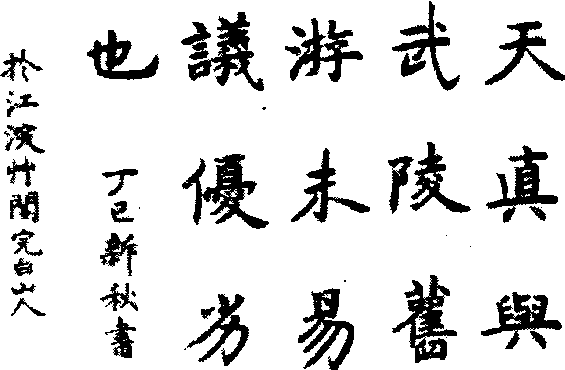 天真與
武陵舊
游未易
議優劣
也 丁巳新秋書
於江浣艸閣完白山人